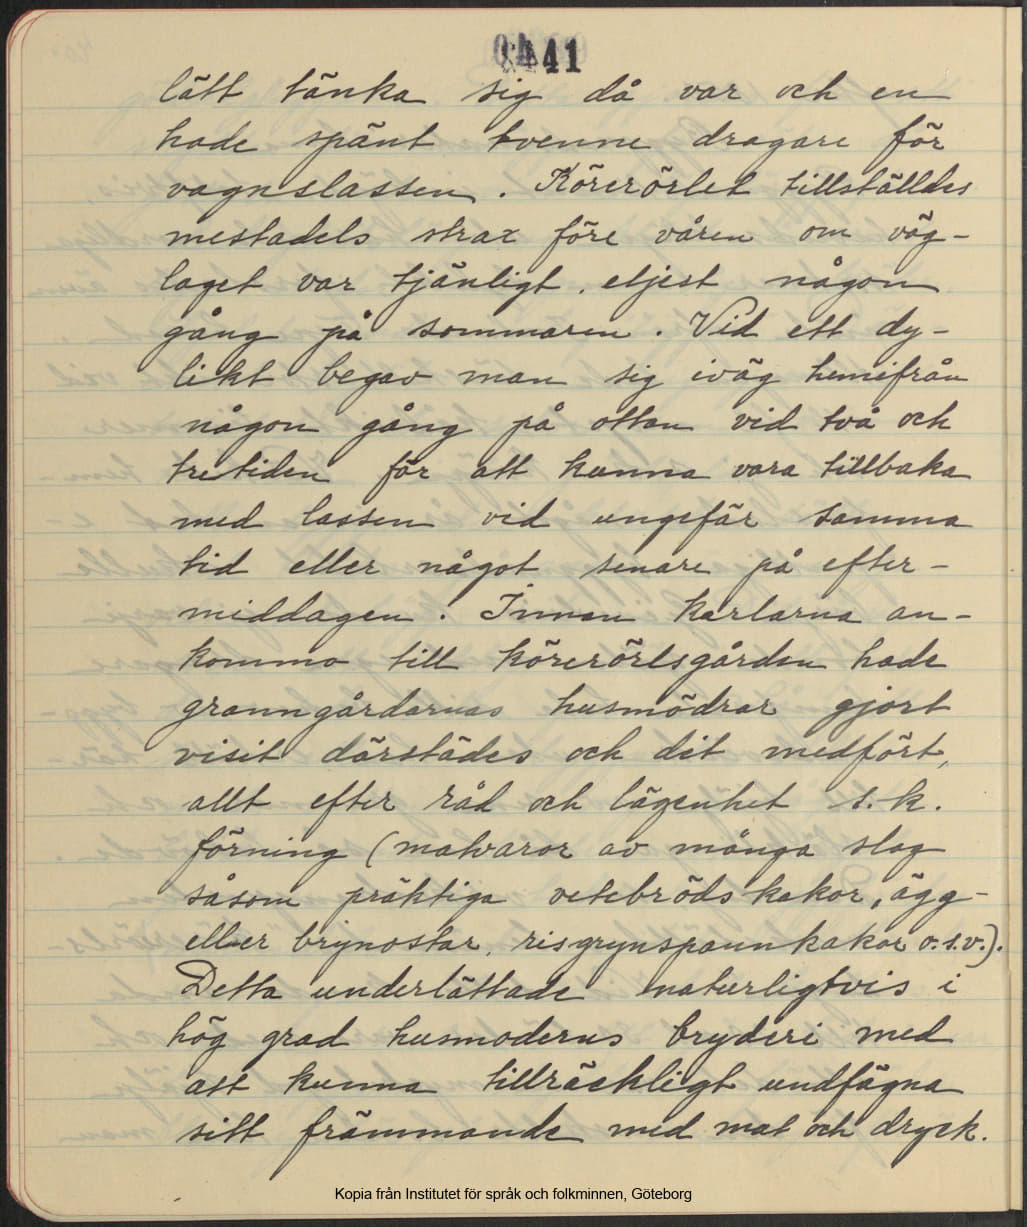 441
lätt tänka sig då var och en
hade spänt tvenne dragare för
vagnslassen. Körerörlet tillställdes
mestadels strax före våren om väg-
laget var tjänligt, eljest någon
gång på sommaren. Vid ett dy-
likt begav man sig iväg hemifrån
någon gång på ottan vid två och
tretiden för att kunna vara tillbaka
med lassen vid ungefär samma
tid eller något senare på efter-
middagen. Innan karlarna an-
kommo till körerörlsgården hade
granngårdarnas husmödrar gjort
visit därstädes och dit medfört,
allt efter råd och lägenhet s.k.
förning (matvaror av många slag
såsom präktiga vetebrödskakor, ägg-
eller brynostar, risgrynspannkakor o.s.v.).
Detta underlättade naturligtvis i
hög grad husmoderns bryderi med
att kunna tillräckligt undfägna
sitt främmande med mat och dryck.
Kopia från Institutet för språk och folkminnen, Göteborg